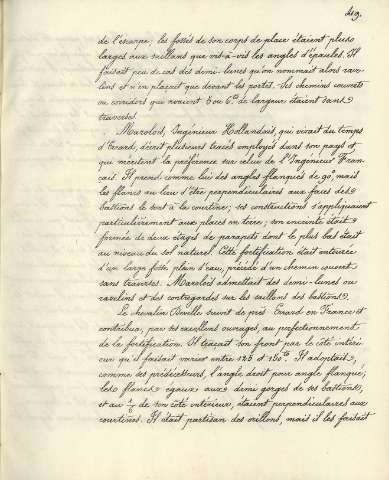 49.
de l'escarpe; les fossés de son corps de place étaient plus
larges aux saillans que vis-à-vis les angles d'épaules. Il
faisait peu de cas des demi-lunes qu'on nommait alors rave-
lins et n'en plaçait que devant les portes. Ses chemins couverts
ou corridors qui avaient 5 ou 6m de largeur étaient sans
traverses.
Marolois, Ingénieur Hollandais, qui vivait du temps
d'Errard, décrit plusieurs tracés employés dans son pays et
qui méritent la préférence sur celui de l'Ingénieur Fran-
çais. Il prend comme lui des angles flanqués de 90°, mais
les flancs au lieu d'être perpendiculaires aux faces des
bastions le sont à la courtine; ses constructions s'appliquaient
particulièrement aux places en terre; son enceinte était
formée de deux étages de parapets dont le plus bas était
au niveau du sol naturel. Cette fortification était entourée
d'un large fossé plein d'eau, précédé d'un chemin couvert
sans traverses. Marolois admettait des demi-lunes ou
ravelins et des contregardes sur les saillans des bastions.
Le chevalier Deville suivit de près Errard en France et
contribua, par ses excellens ouvrages, au perfectionnement
de la fortification. Il traçait son front par le côté intéri-
eur qu'il faisait varier entre 125 et 130m. Il adoptait,
comme ses prédécesseurs, l'angle droit pour angle flanqué;
les flancs égaux aux demi gorges de ses bastions
et au 1/6 de son côté intérieur, étaient perpendiculaires aux
courtines. Il était partisan des orillons, mais il les faisait